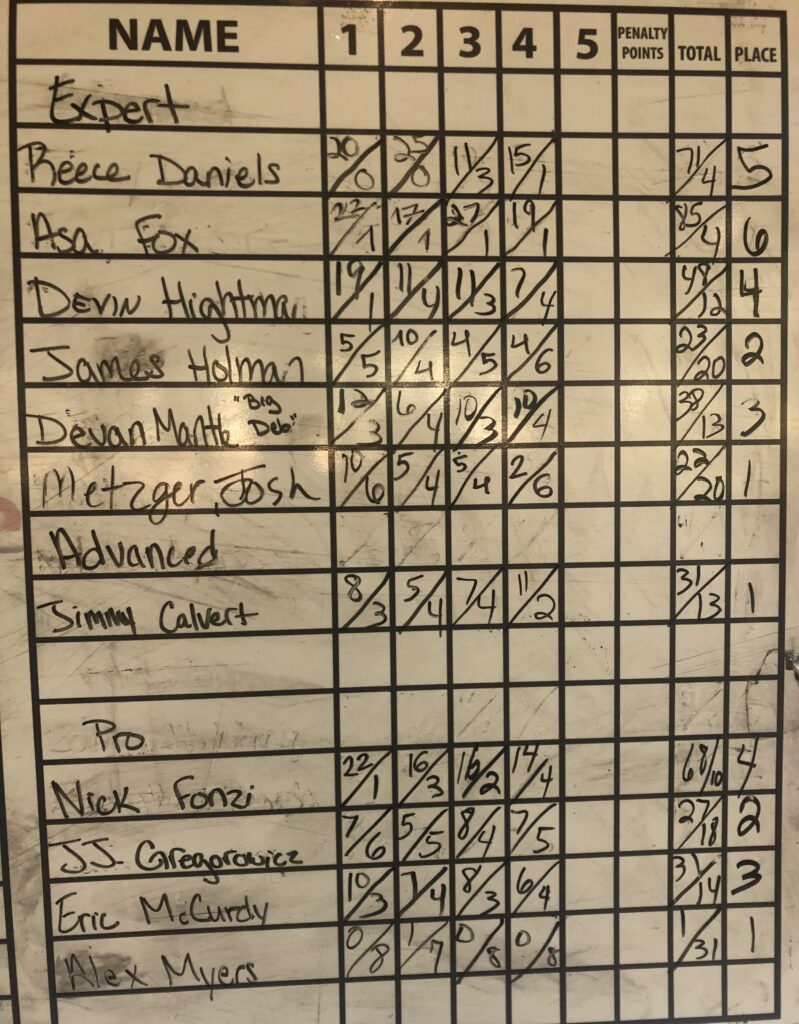 NAME 1 2 3 4 5 PENALTY POINTS TOTAL PLACE
Expert
Reece Daniels 20/0 25/0 11/3 15/1 71/4 5
Asa Fox 22/1 17/1 27/1 19/1 85/4 6
DEVIN Hightman 19/1 11/4 11/3 7/4 48/12 4
James Holman 5/5 10/4 4/5 4/6 23/20 2
Devan Mantle "Big Deb" 12/3 6/4 10/3 10/4 38/13 3
Metzger, Josh 10/6 5/4 5/4 2/6 22/20 1
Advanced
Jimmy Calvert 8/3 5/4 7/4 11/2 31/13 1
Pro
Nick Fonzi 22/1 16/3 16/2 14/4 68/10 4
JJ Gregorowicz 7/6 5/5 8/4 7/5 27/18 2
Eric McCurdy 10/3 7/4 8/3 6/4 31/14 3
Alex Myers 0/8 1/7 0/8 0/8 1/31 1